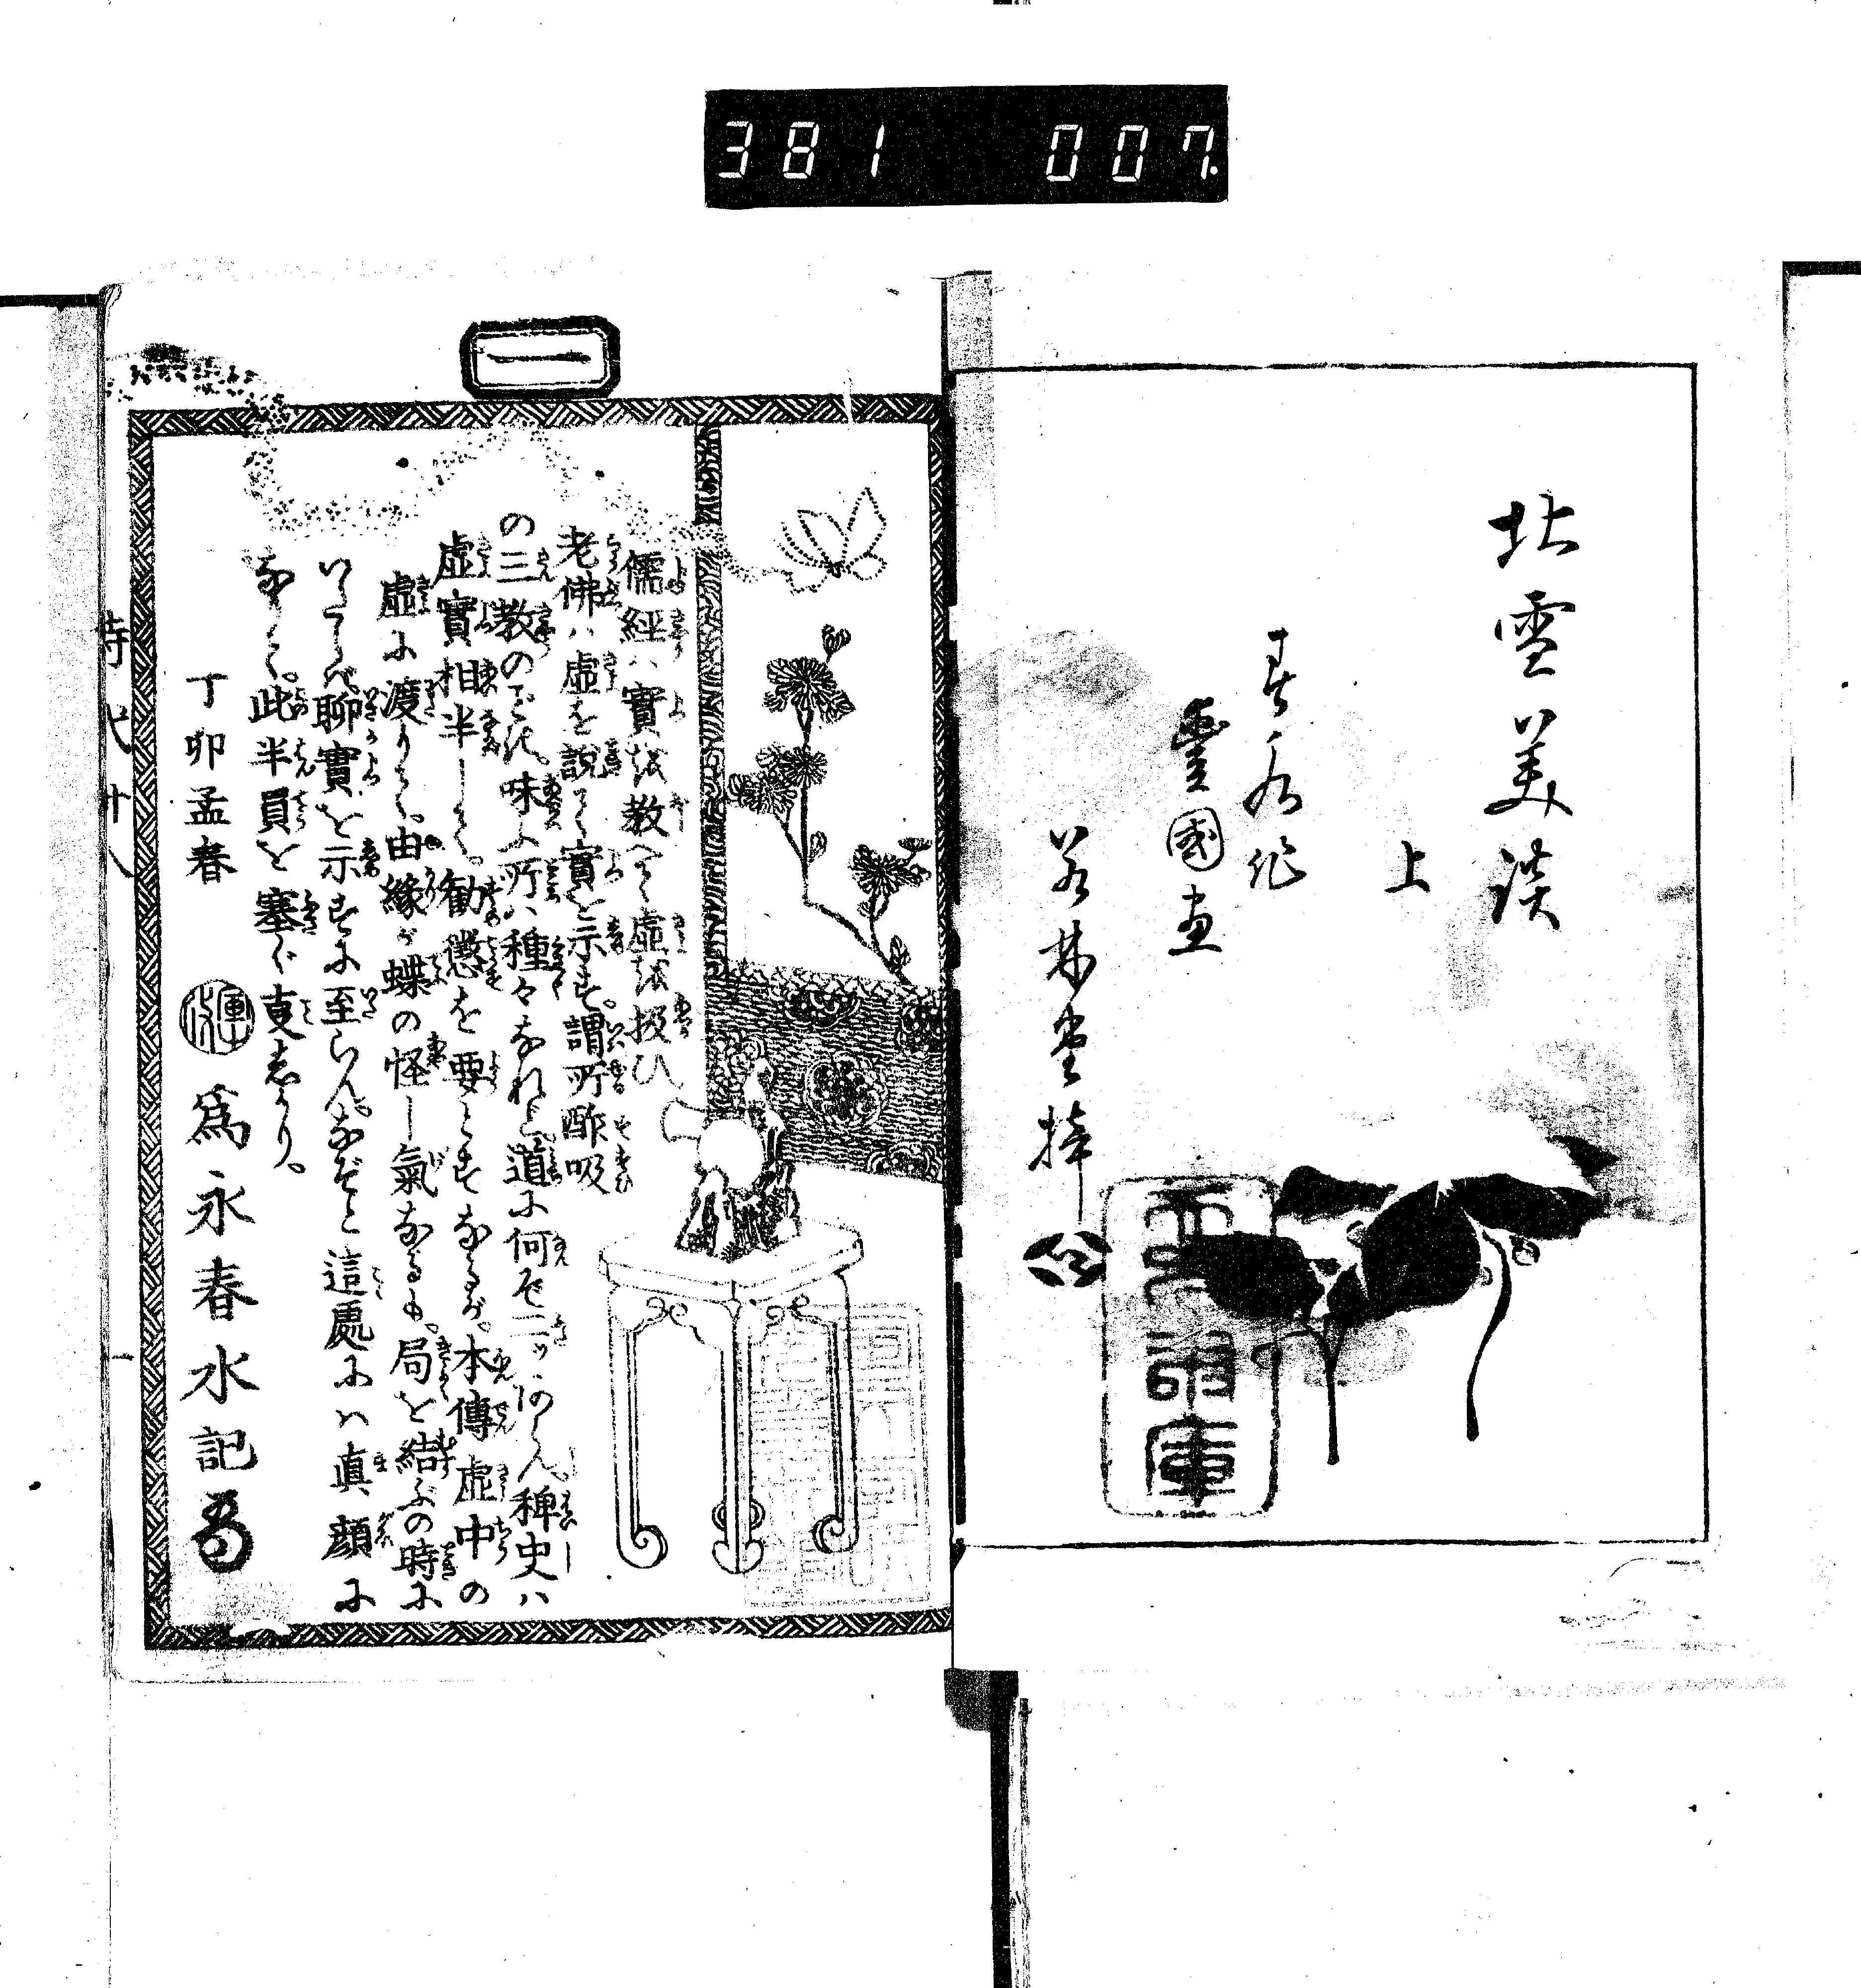 381 007
北雪美談
上
春水作
豊國画
若林堂梓
一
儒経ハ實を教へて虚を扱ひ
老佛ハ虚を説て實を示す。謂所酢吸
の三教の
味ふ所ハ種々なれど道に何ぞ二ッ
稗史ハ
虚實相半して。勧懲を要とすなるが。本傳虚中の
虚に渡りて。由縁が蝶の怪し氣なるも。局を結ぶの時に
聊實を示すに至らんなぞと這處にハ真顔に
なして。此半員を塞ぐ事しかり。
丁卯孟春
為永春水記